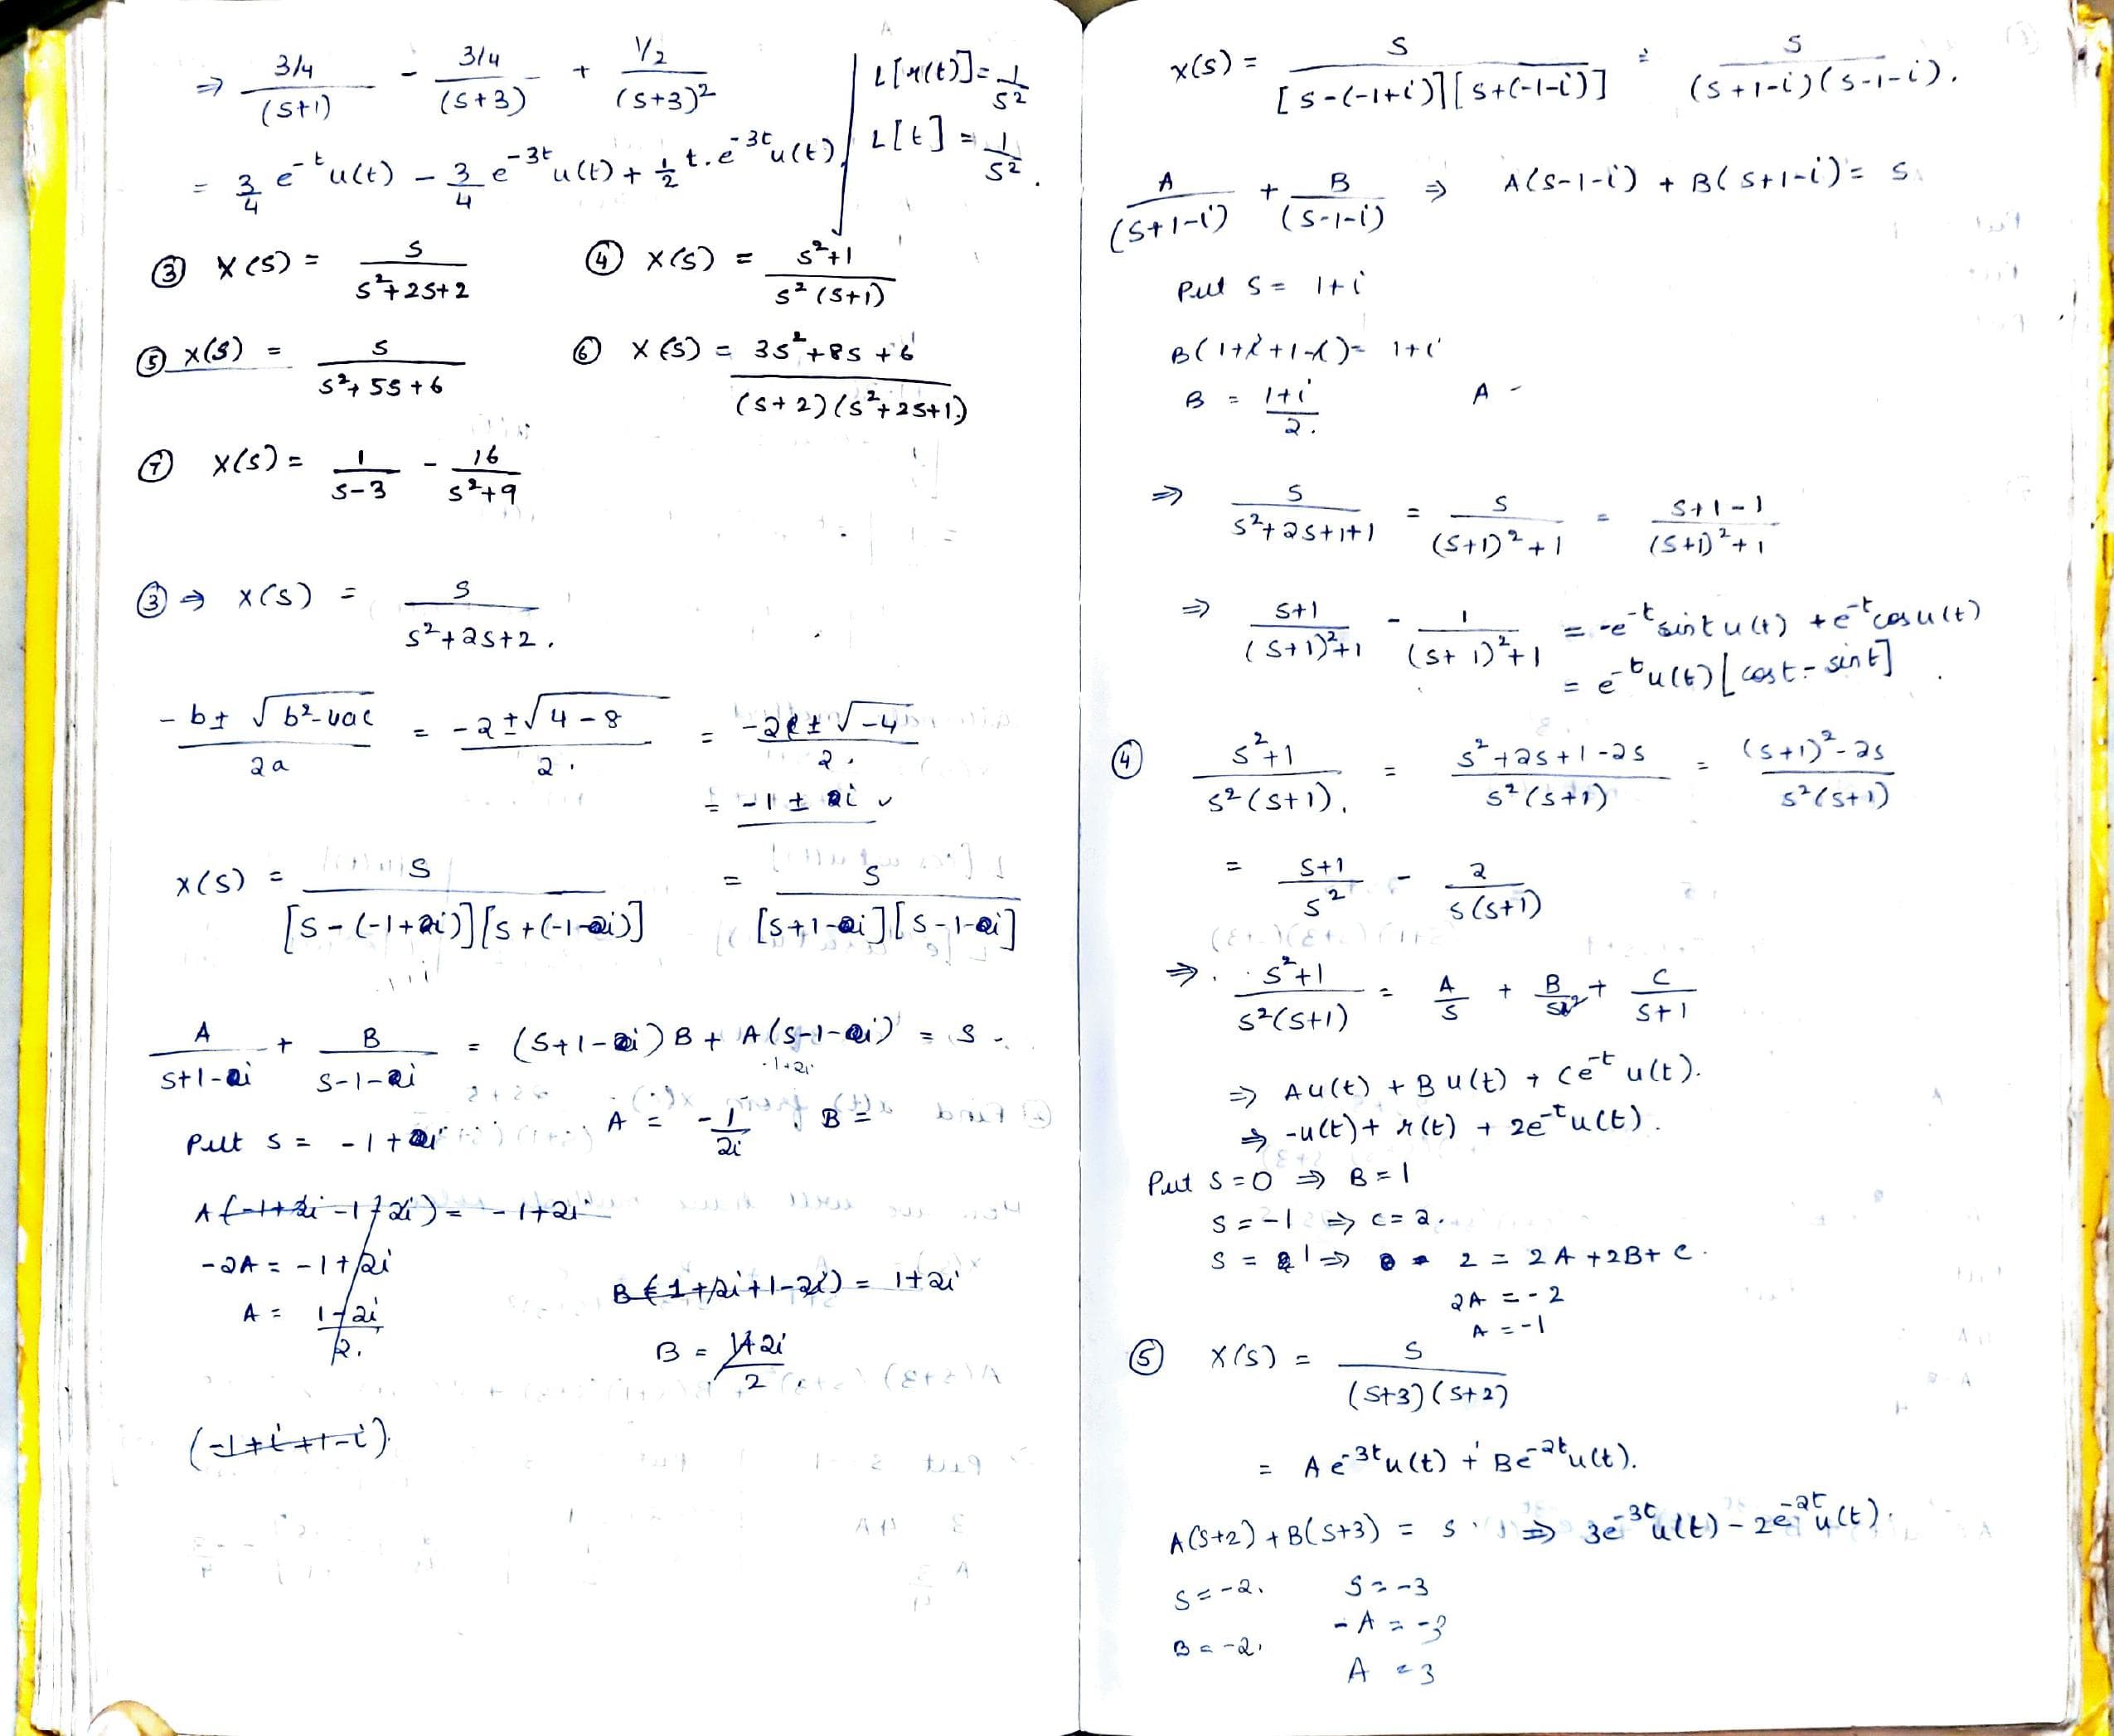 ⇒ 3/4 / (s+1) - 3/4 / (s+3) + 1/2 / (s+3)²
= 3/4 e^-t u(t) - 3/4 e^-3t u(t) + 1/2 t.e^-3t u(t)
L[r(t)] = 1/s²
L[t] = 1/s².
③ X(s) = s / s²+2s+2
④ X(s) = s²+1 / s²(s+1)
⑤ X(s) = s / s²+5s+6
⑥ X(s) = 3s²+8s+6 / (s+2)(s²+2s+1)
⑦ X(s) = 1/s-3 - 16/s²+9
③ ⇒ X(s) = s / s²+2s+2.
-b ± √b²-4ac / 2a = -2 ± √4-8 / 2. = -2 ± √-4 / 2.
= -1 ± i
X(s) = s / [s-(-1+i)][s+(-1-i)] = s / [s+1-i][s-1-i]
A / s+1-i + B / s-1-i = (s+1-i)B + A(s-1-i) = s.
-1+2i
Put s = -1+i A = -1/2i B =
A(-1+2i-1-2i) = -1+2i
-2A = -1+2i
A = 1-2i / 2.
B(1+2i+1-2i) = 1+2i
B = 1+2i / 2
(-1+i+1-i).
X(s) = s / [s-(-1+i)][s+(-1-i)] = s / (s+1-i)(s-1-i).
A / (s+1-i) + B / (s-1-i) ⇒ A(s-1-i) + B(s+1-i) = s.
Put s = 1+i
B(1+i+1-i) = 1+i
B = 1+i / 2. A -
⇒ s / s²+2s+1+1 = s / (s+1)²+1 = s+1-1 / (s+1)²+1
⇒ s+1 / (s+1)²+1 - 1 / (s+1)²+1 = -e^-t sint u(t) + e^-t cos u(t)
= e^-t u(t) [cost - sint]
④ s²+1 / s²(s+1). = s²+2s+1-2s / s²(s+1) = (s+1)²-2s / s²(s+1)
= s+1 / s² - 2 / s(s+1)
⇒. s²+1 / s²(s+1) = A/s + B/s² + C/s+1
⇒ Au(t) + Bu(t) + Ce^-t u(t).
⇒ -u(t) + r(t) + 2e^-t u(t).
Put s=0 ⇒ B=1
s=-1 ⇒ C=2.
s=1 ⇒ 2 = 2A+2B+C.
2A = -2
A = -1
⑤ X(s) = s / (s+3)(s+2)
= Ae^-3t u(t) + Be^-2t u(t).
A(s+2) + B(s+3) = s. ⇒ 3e^-3t u(t) - 2e^-2t u(t).
s=-2. s=-3
-A = -3
B=-2. A = 3